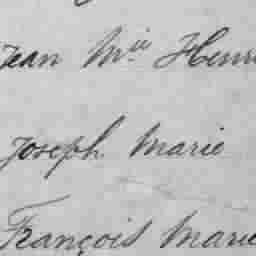 Jean Mie Henri
Joseph Marie
François Marie